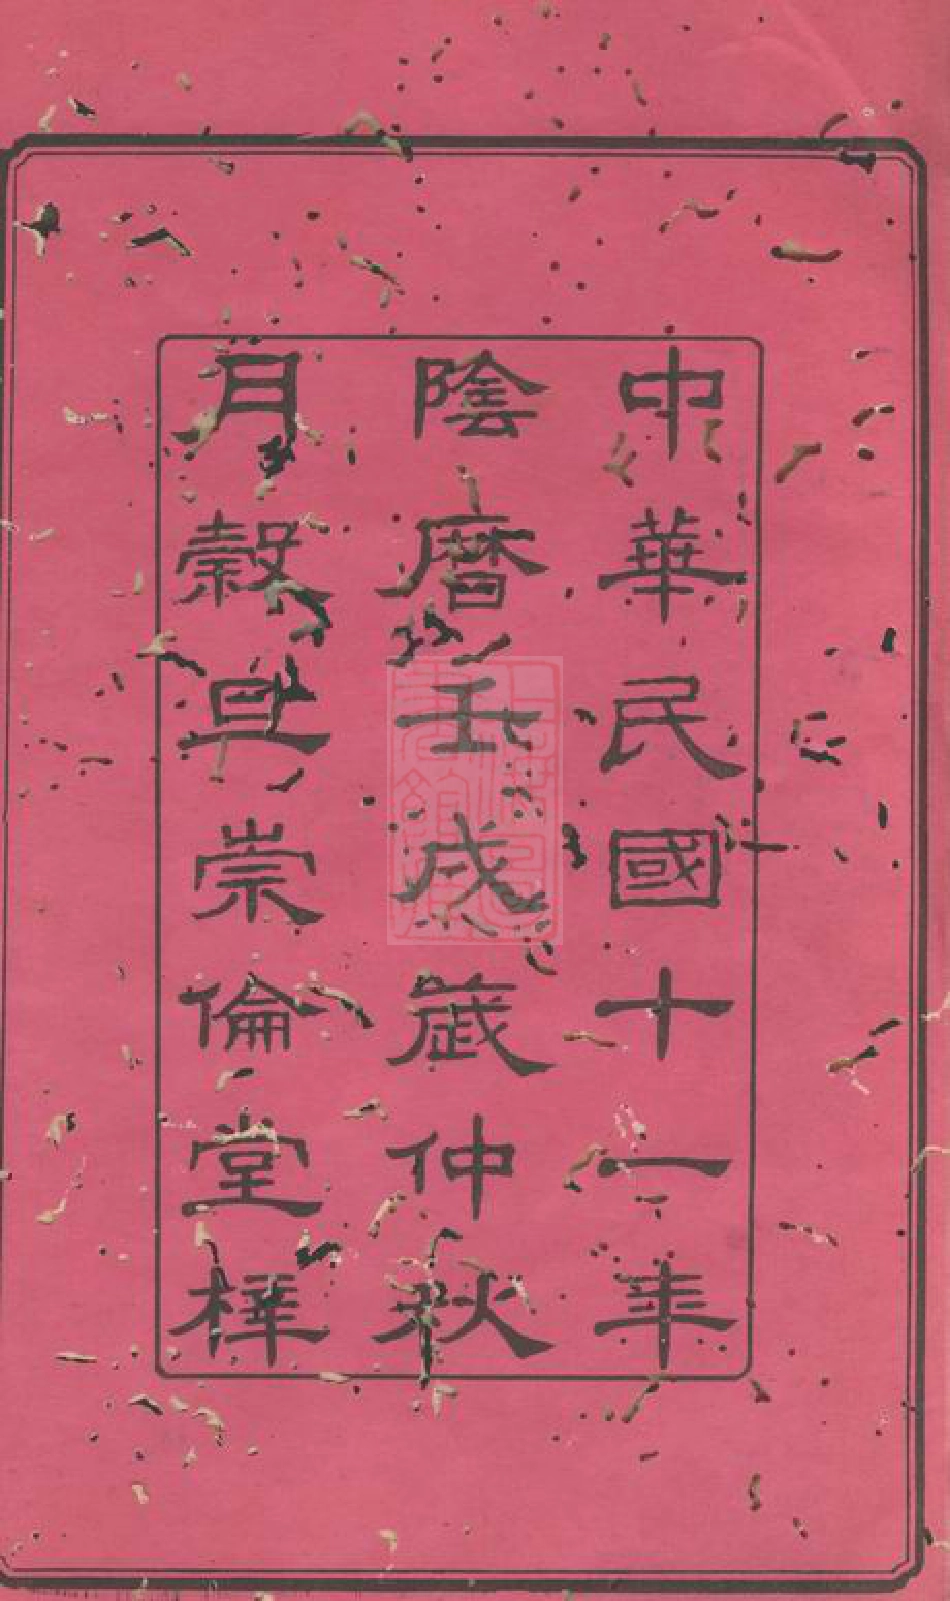 中華民國十一年
陰曆壬戌歲仲秋
月穀旦崇倫堂梓